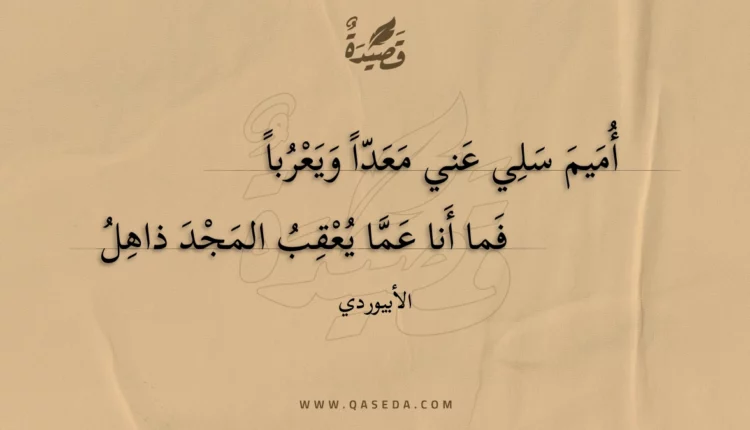 قَصِيْدَةٌ
أُمَيمَ سَلِي عَني مَعَدّاً وَيَعْرُباً
فَما أَنا عَمَّا يُعْقِبُ المَجْدَ ذاهِلُ
الأبيوردي
WWW.QASEDA.COM